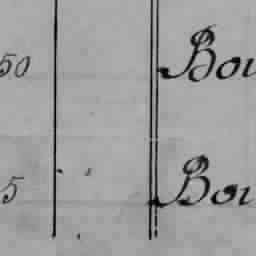 50 Bou
5 Bou